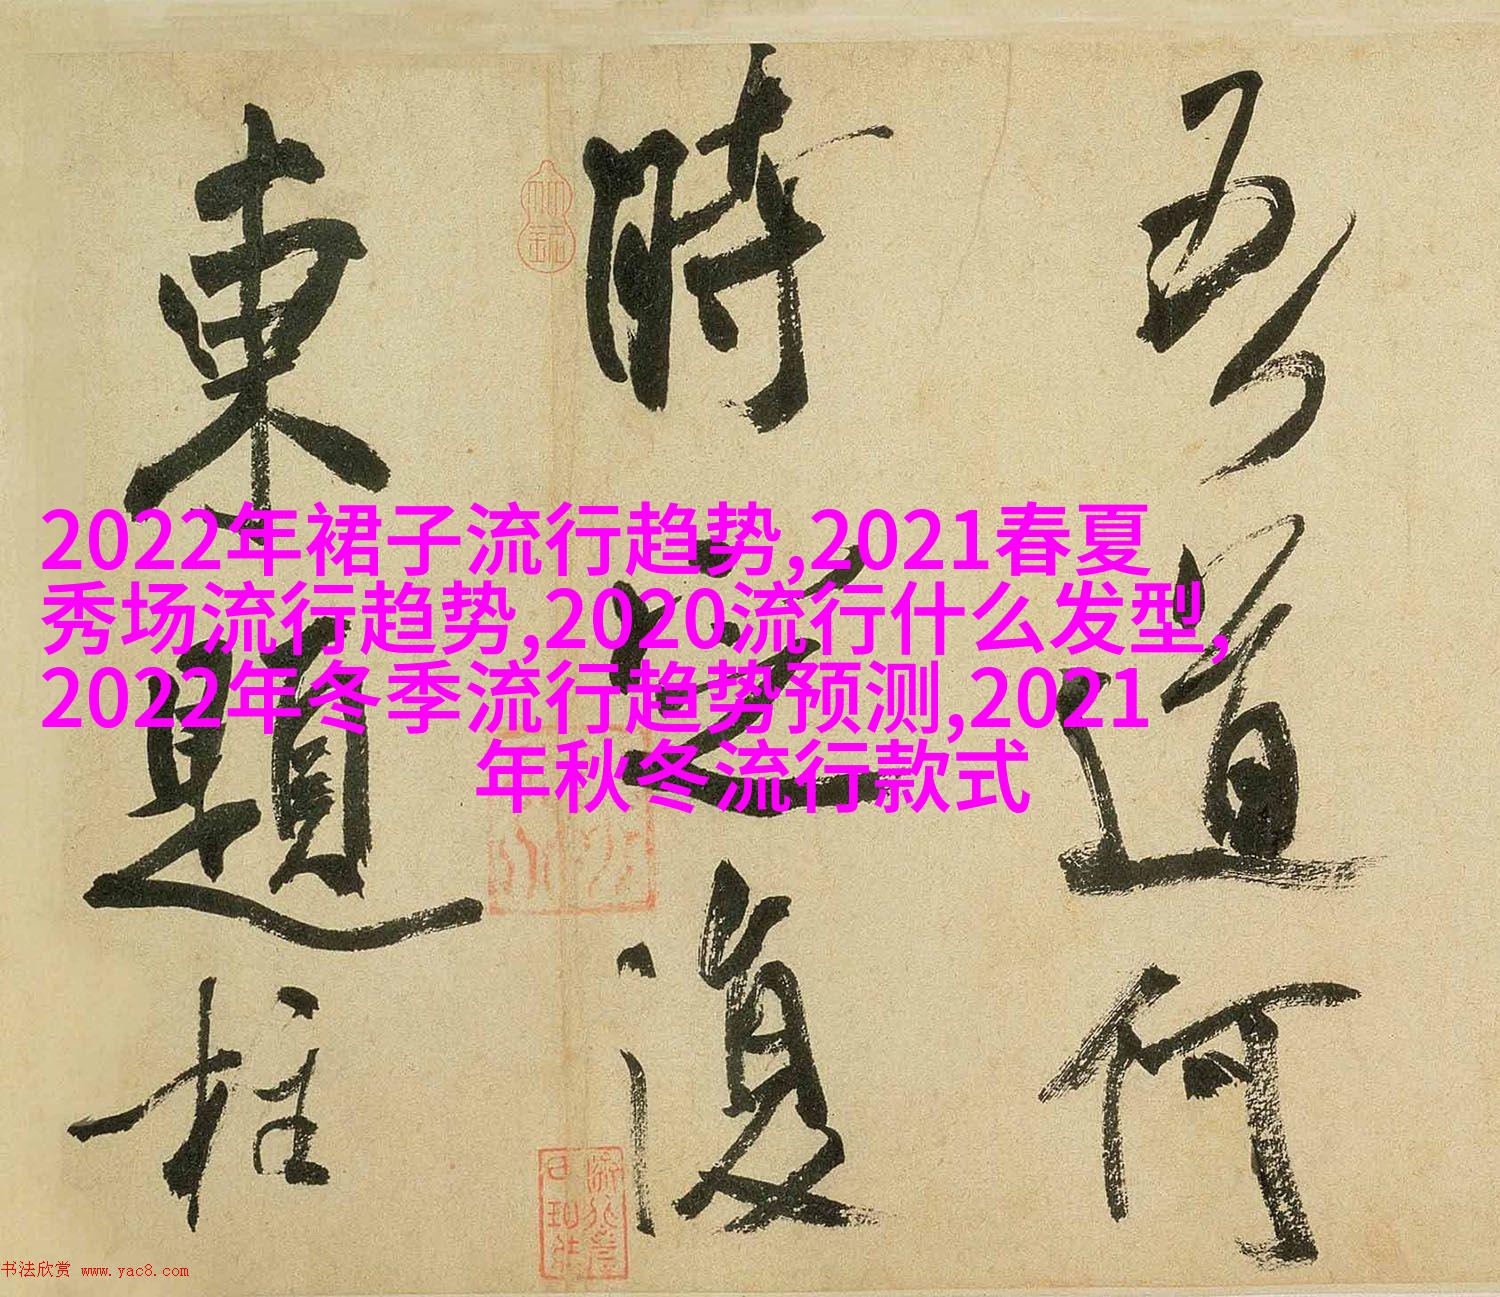 吾道何
時定復
東題柱
2022年裙子流行趋势,2021春夏
秀场流行趋势,2020流行什么发型,
2022年冬季流行趋势预测,2021
年秋冬流行款式
书法欣赏 www.yac8.com